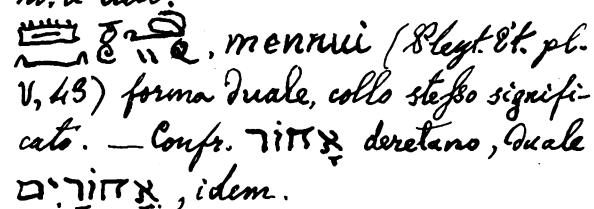 mennui (Pleyt. Et. pl.
V, 43) forma duale, collo stesso signifi-
cato. — Confr. אָחוֹר deretano, duale
אֲחוֹרַיִם, idem.